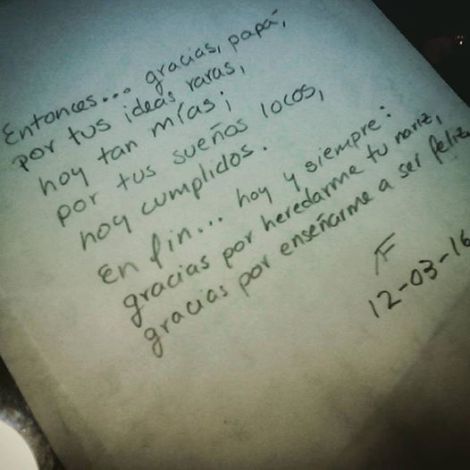 Entonces... gracias, papá,
por tus ideas raras,
hoy tan mías;
por tus sueños locos,
hoy cumplidos.
En fin... hoy y siempre:
gracias por heredarme tu nariz,
gracias por enseñarme a ser feliz
AF
12-03-16